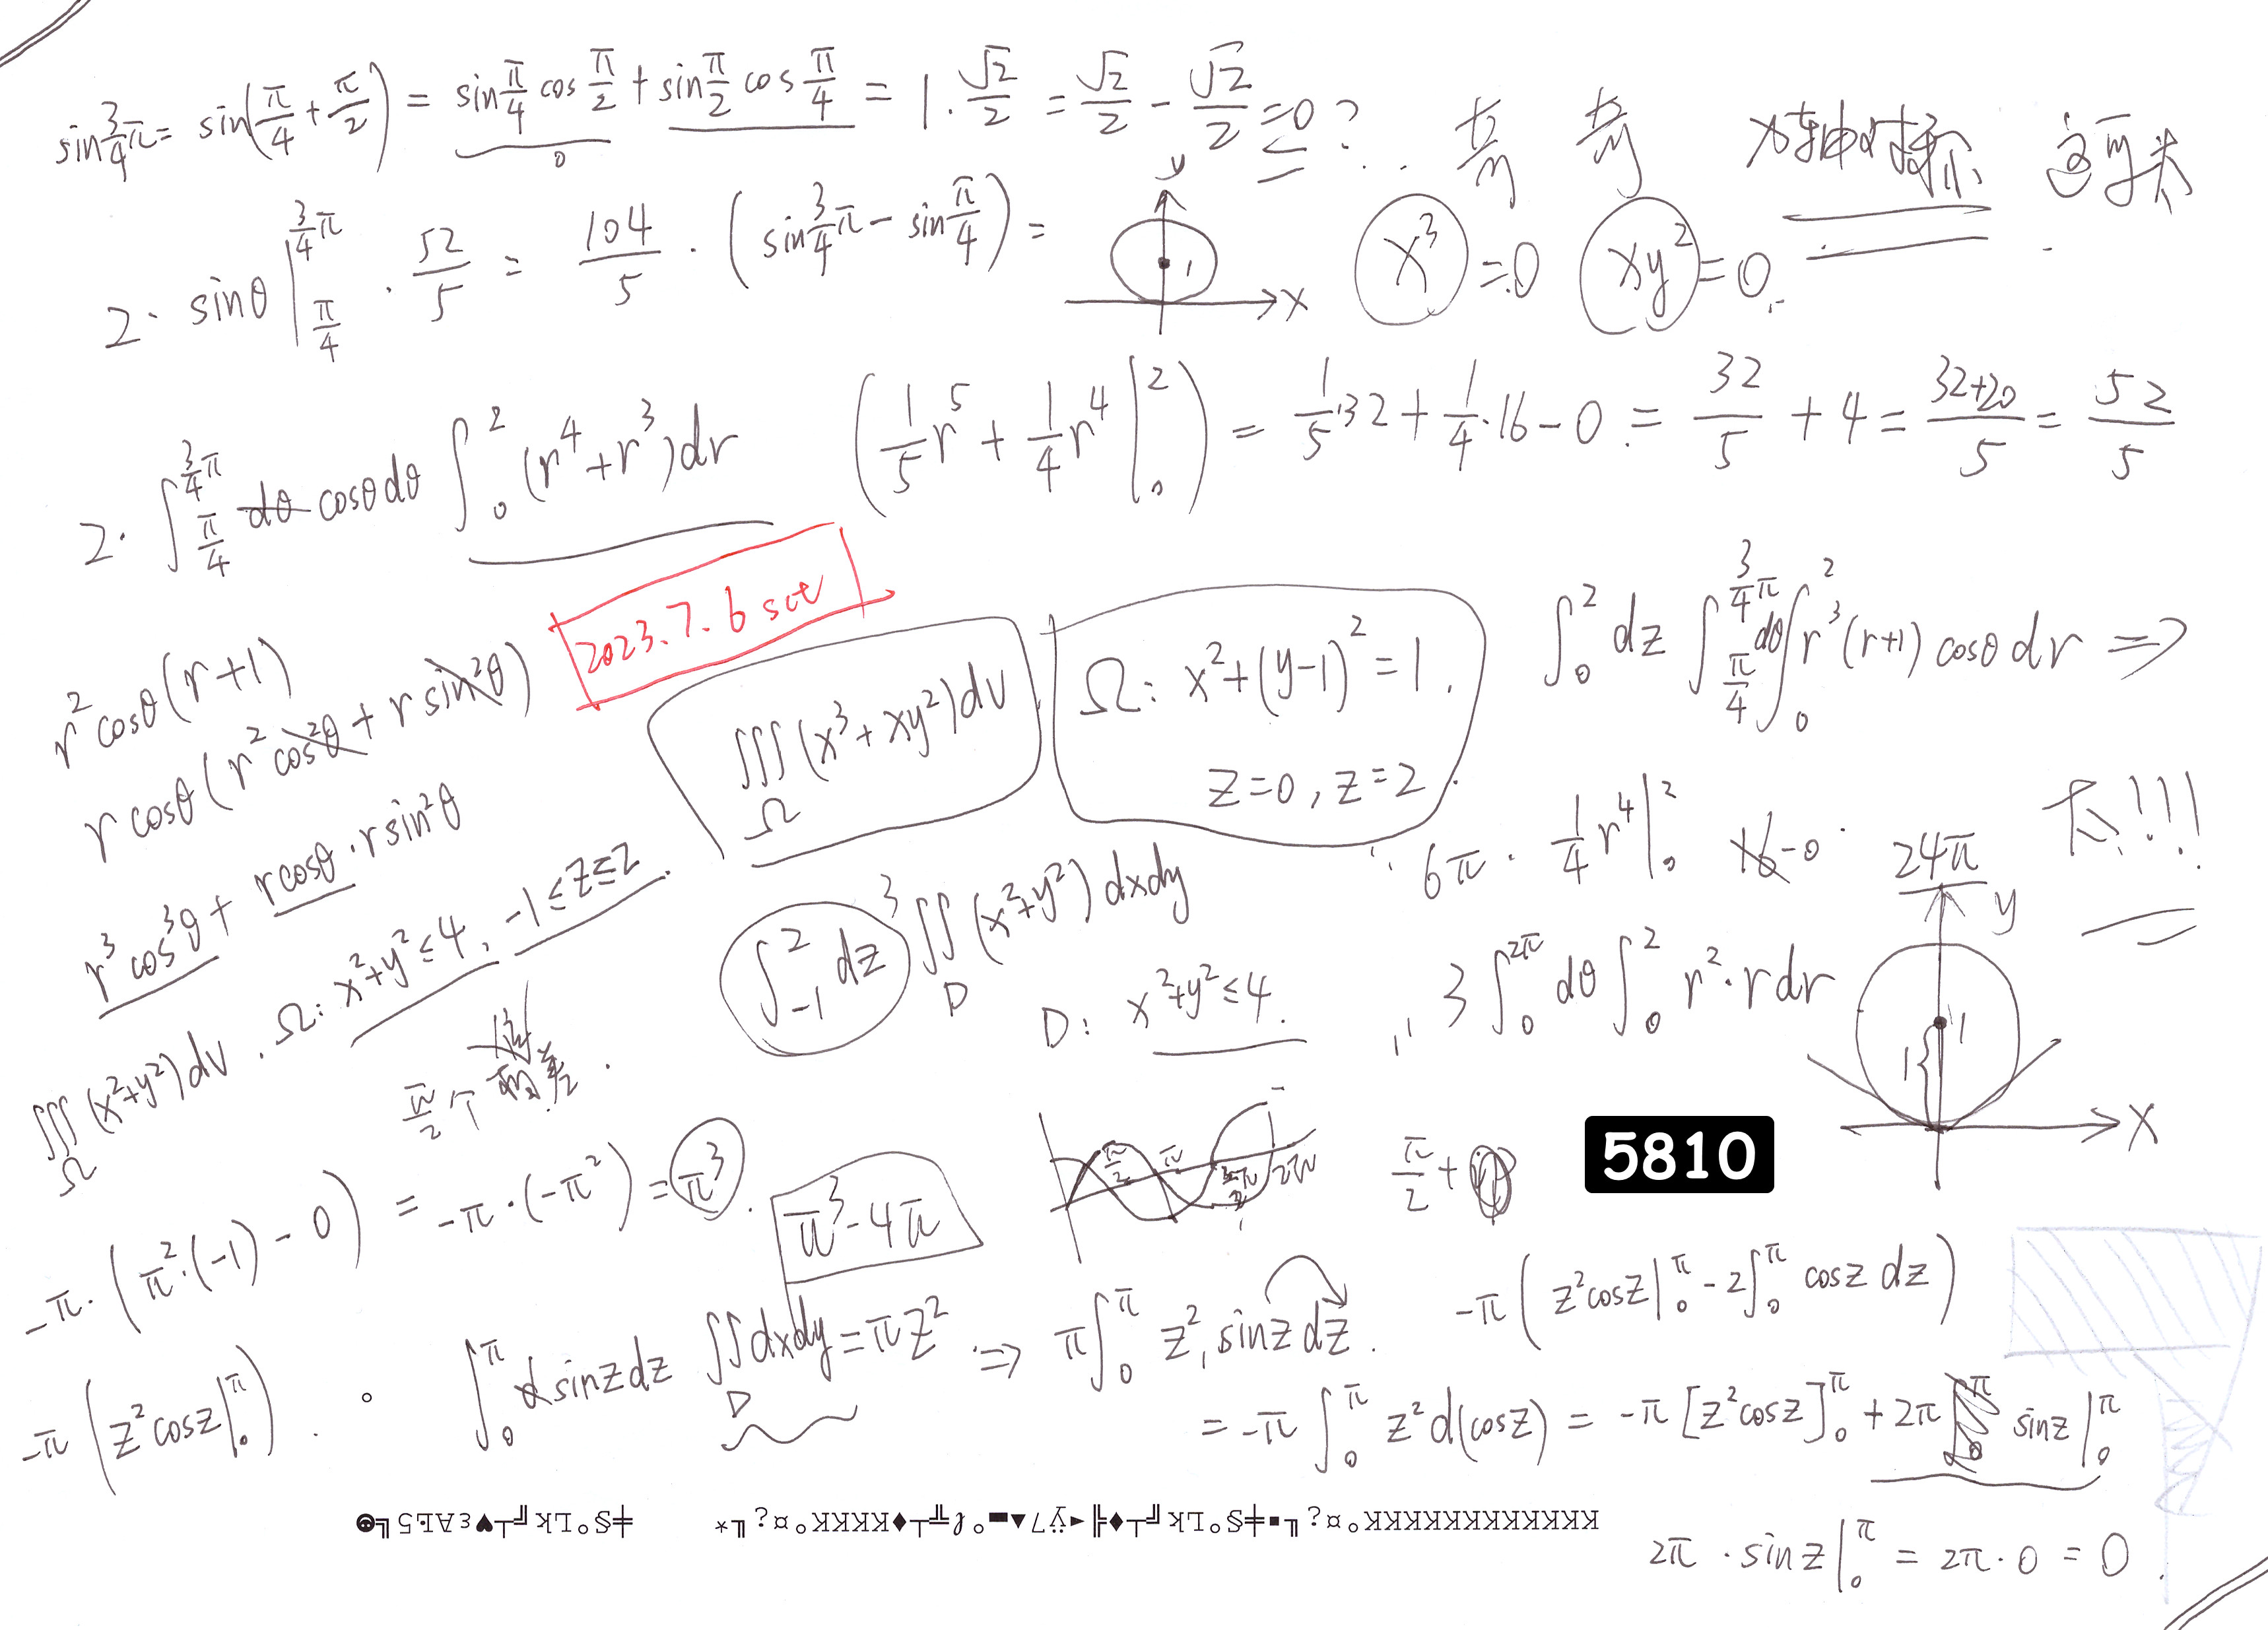 sin 3/4 π = sin(π/4 + π/2) = sin π/4 cos π/2 + sin π/2 cos π/4 = 1 · √2/2 = √2/2 - √2/2 = 0 ?
0
奇 奇 x轴对称
2 · sinθ |_{π/4}^{3/4 π} · 52/5 = 104/5 · (sin 3/4 π - sin π/4) =
y
1
x
x³ = 0 xy² = 0.
2 · ∫_{π/4}^{3/4 π} dθ cosθ dθ ∫_0^2 (r⁴ + r³) dr
(1/5 r⁵ + 1/4 r⁴ |_0^2) = 1/5 · 32 + 1/4 · 16 - 0 = 32/5 + 4 = (32+20)/5 = 52/5
2023.7.6 sct
r² cosθ (r+1)
r cosθ (r² cos²θ + r sin²θ)
r³ cos³θ + r cosθ · r sin²θ
∭_Ω (x³ + xy²) dv
Ω: x² + (y-1)² = 1.
z=0, z=2.
∫_0^2 dz ∫_{π/4}^{3/4 π} dθ ∫_0^2 r³ (r+1) cosθ dr ⇒
6π · 1/4 r⁴ |_0^2 16-0 24π
!!!
∭_Ω (x²+y²) dv . Ω: x²+y² ≤ 4, -1 ≤ z ≤ 2.
∫_{-1}^2 dz 3 ∬_D (x²+y²) dxdy
D: x²+y² ≤ 4.
3 ∫_0^{2π} dθ ∫_0^2 r² · r dr
y
1
1
x
π/2 个 相差
π/2
π
3/2 π
2π
π/2 +
5810
-π · (π² · (-1) - 0) = -π · (-π²) = π³.
π³ - 4π
-π (z² cosz |_0^π - 2 ∫_0^π cosz dz)
-π (z² cosz |_0^π) .
∫_0^π sinz dz ∬_D dxdy = πz² ⇒ π ∫_0^π z², sinz dz.
= -π ∫_0^π z² d(cosz) = -π [z² cosz]_0^π + 2π sinz |_0^π
2π · sinz |_0^π = 2π · 0 = 0 .